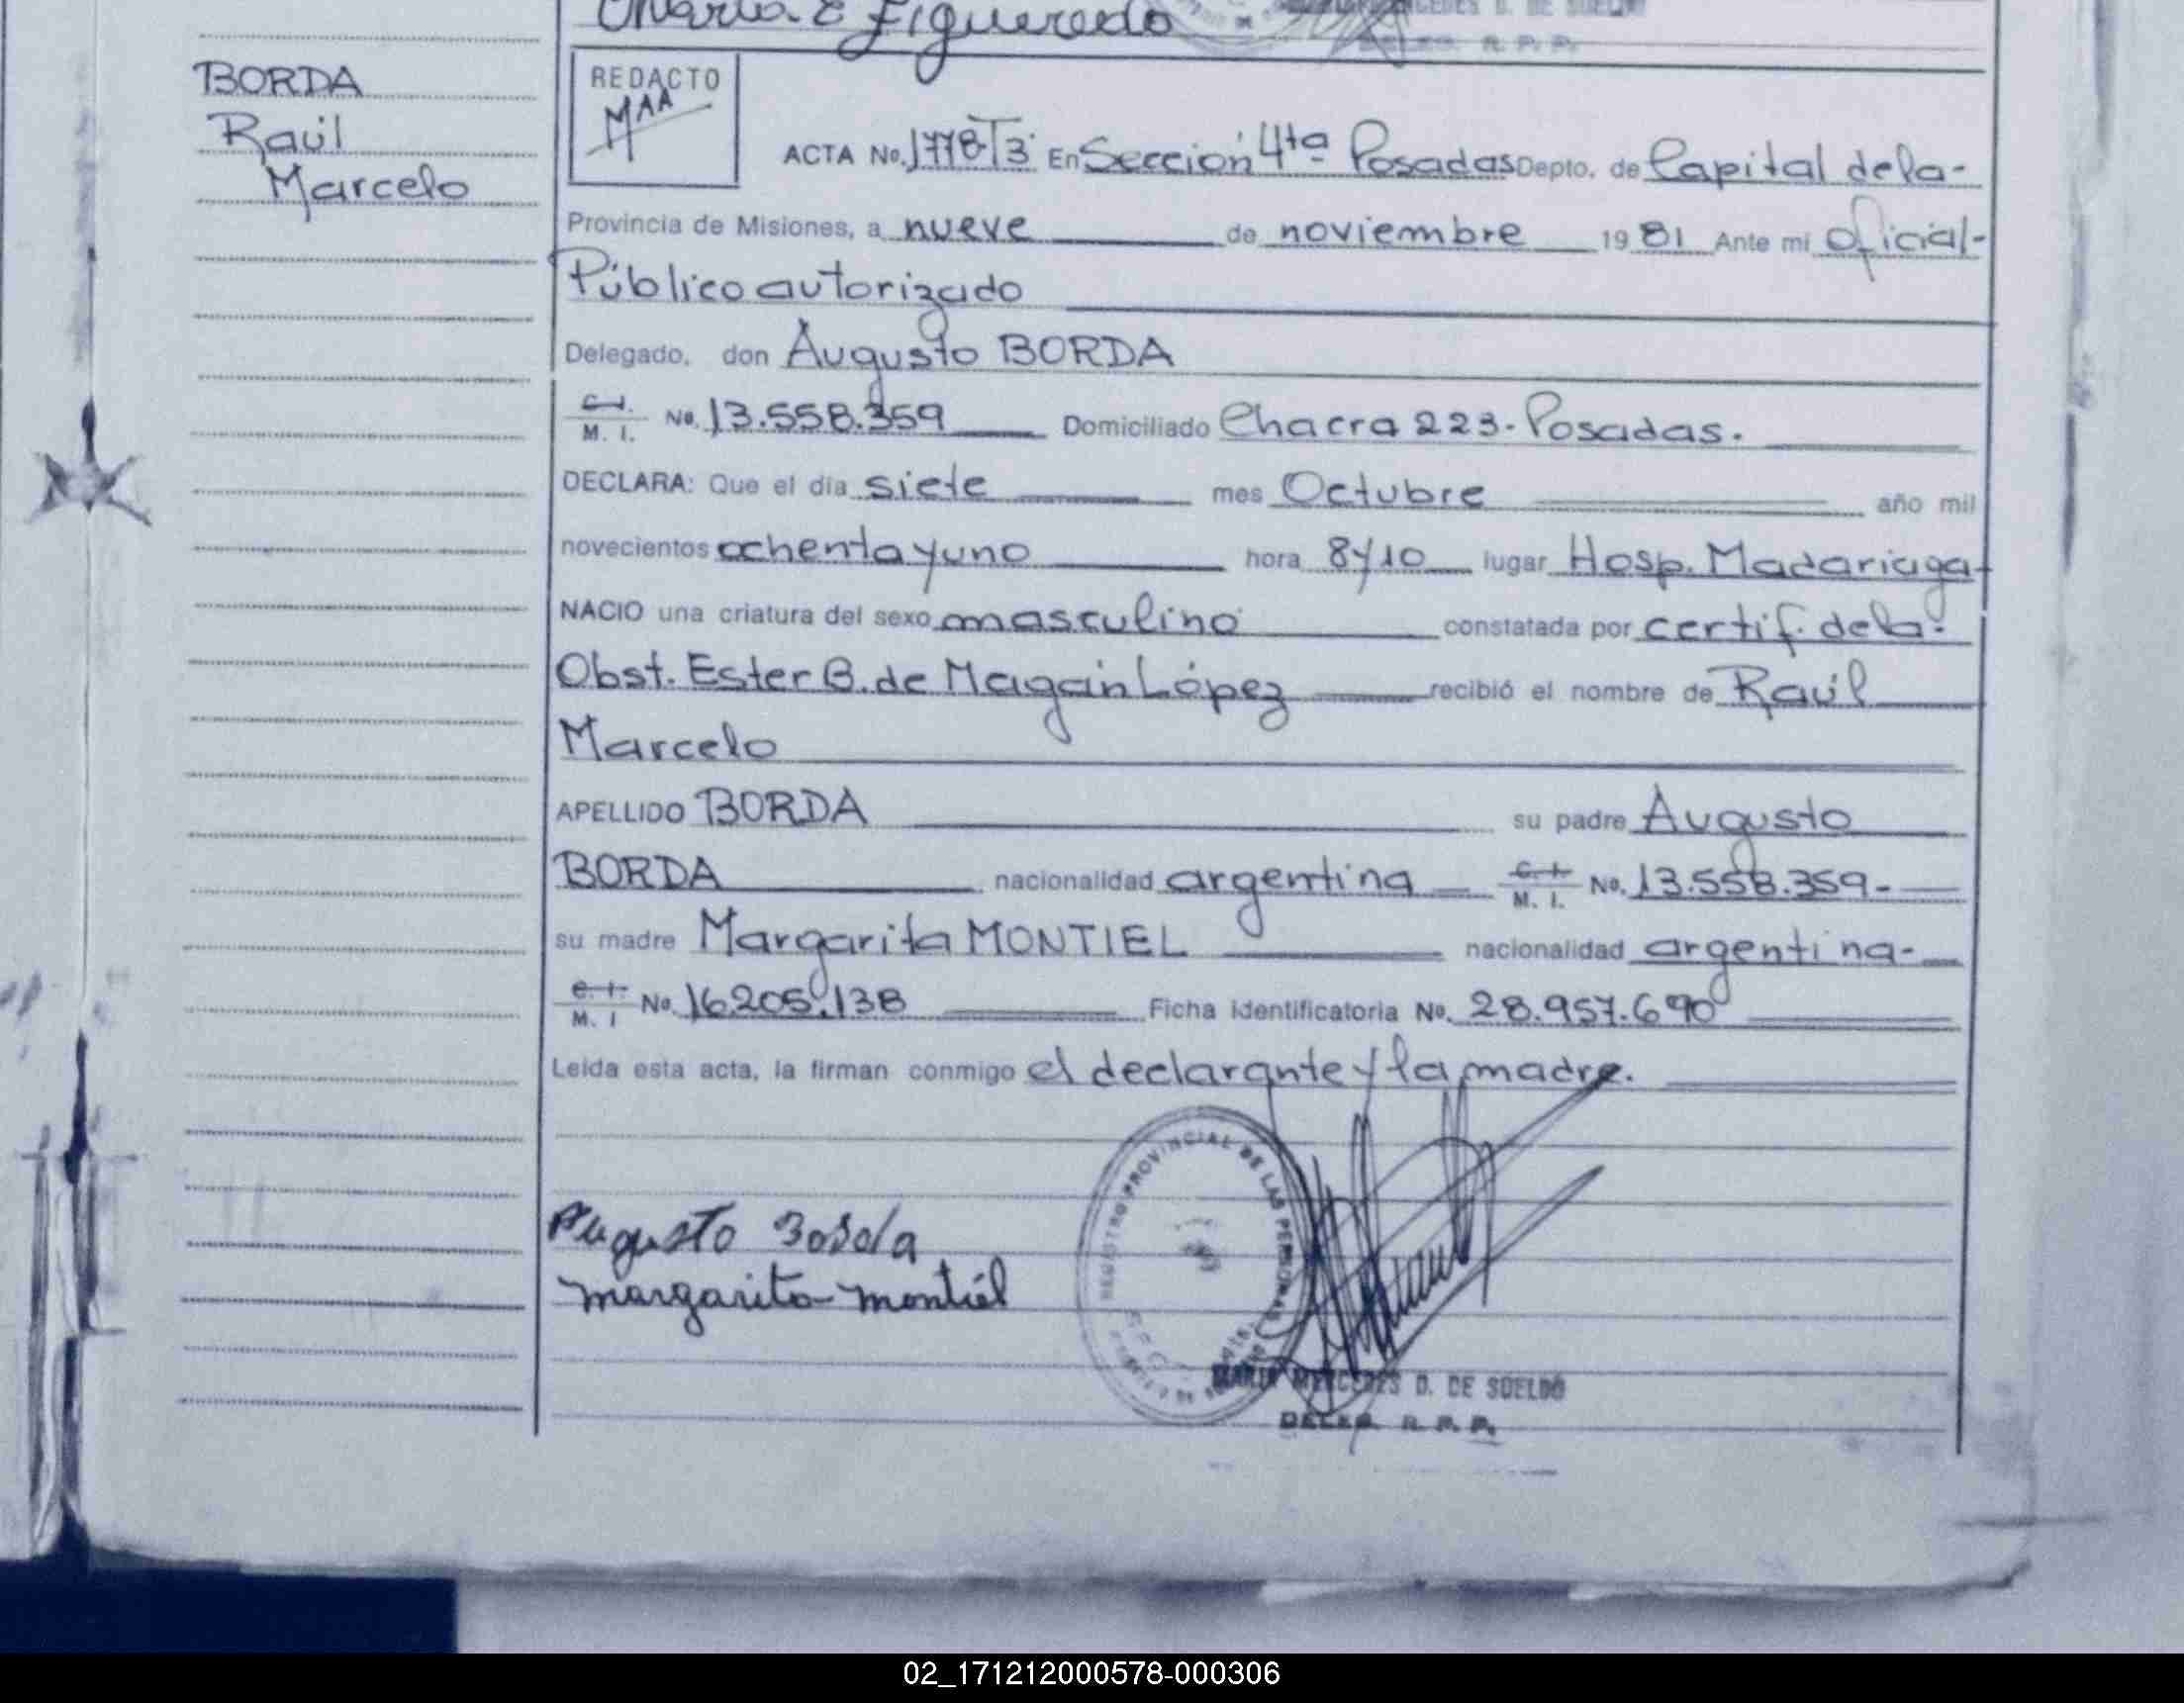 Maria E Figueredo
DELEG. R. P. P.
BORDA
Raúl
Marcelo
REDACTO
MAA
ACTA No. 1778T3 En Sección 4ta Posadas Depto. de Capital de la-
Provincia de Misiones, a nueve de noviembre 1981 Ante mi Oficial-
Público autorizado
Delegado, don Augusto BORDA
C.I. M. I. No. 13.558.359 Domiciliado Chacra 223. Posadas.
DECLARA: Que el día siete mes Octubre año mil
novecientos ochenta y uno hora 8y10 lugar Hosp. Madariaga
NACIO una criatura del sexo masculino constatada por certif. de la-
Obst. Ester B. de Magán López recibió el nombre de Raúl
Marcelo
APELLIDO BORDA su padre Augusto
BORDA nacionalidad argentina C.I. M. I. No. 13.558.359-
su madre Margarita MONTIEL nacionalidad argentina-
C.I. M. I No. 16.205.138 Ficha identificatoria No. 28.957.690
Leída esta acta, la firman conmigo el declarante y la madre.
REGISTRO PROVINCIAL DE LAS PERSONAS
Augusto Borda
Margarita Montiel
MARIA MERCEDES D. DE SUELDO
DELEG. R. P. P.
02_171212000578-000306